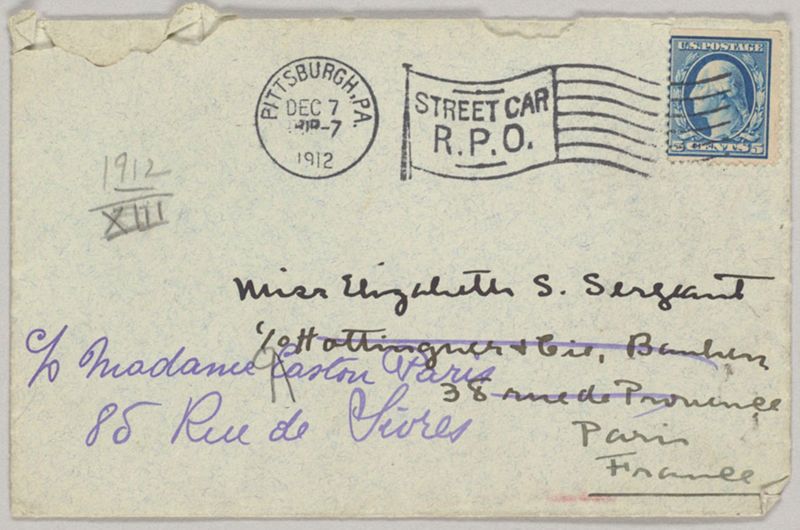 PITTSBURGH, PA.
DEC 7
-7
1912
STREET CAR
R.P.O.
U.S. POSTAGE
5 CENTS 5
1912
XIII
Miss Elizabeth S. Sergeant
c/o Hottinguer & Cie, Bankers
38 rue de Provence
Paris
France
c/o Madame Gaston Paris
85 Rue de Sèvres